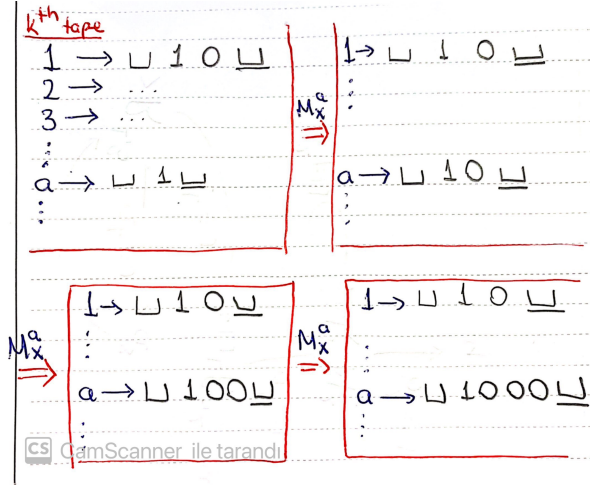 kth tape
1 → ⊔ 1 0 ⊔
2 → ...
3 → ...
a → ⊔ 1 ⊔
Mxa ⇒
1 → ⊔ 1 0 ⊔
a → ⊔ 1 0 ⊔
Mxa ⇒
1 → ⊔ 1 0 ⊔
a → ⊔ 1 0 0 ⊔
Mxa ⇒
1 → ⊔ 1 0 ⊔
a → ⊔ 1 0 0 0 ⊔
CS CamScanner ile tarandı